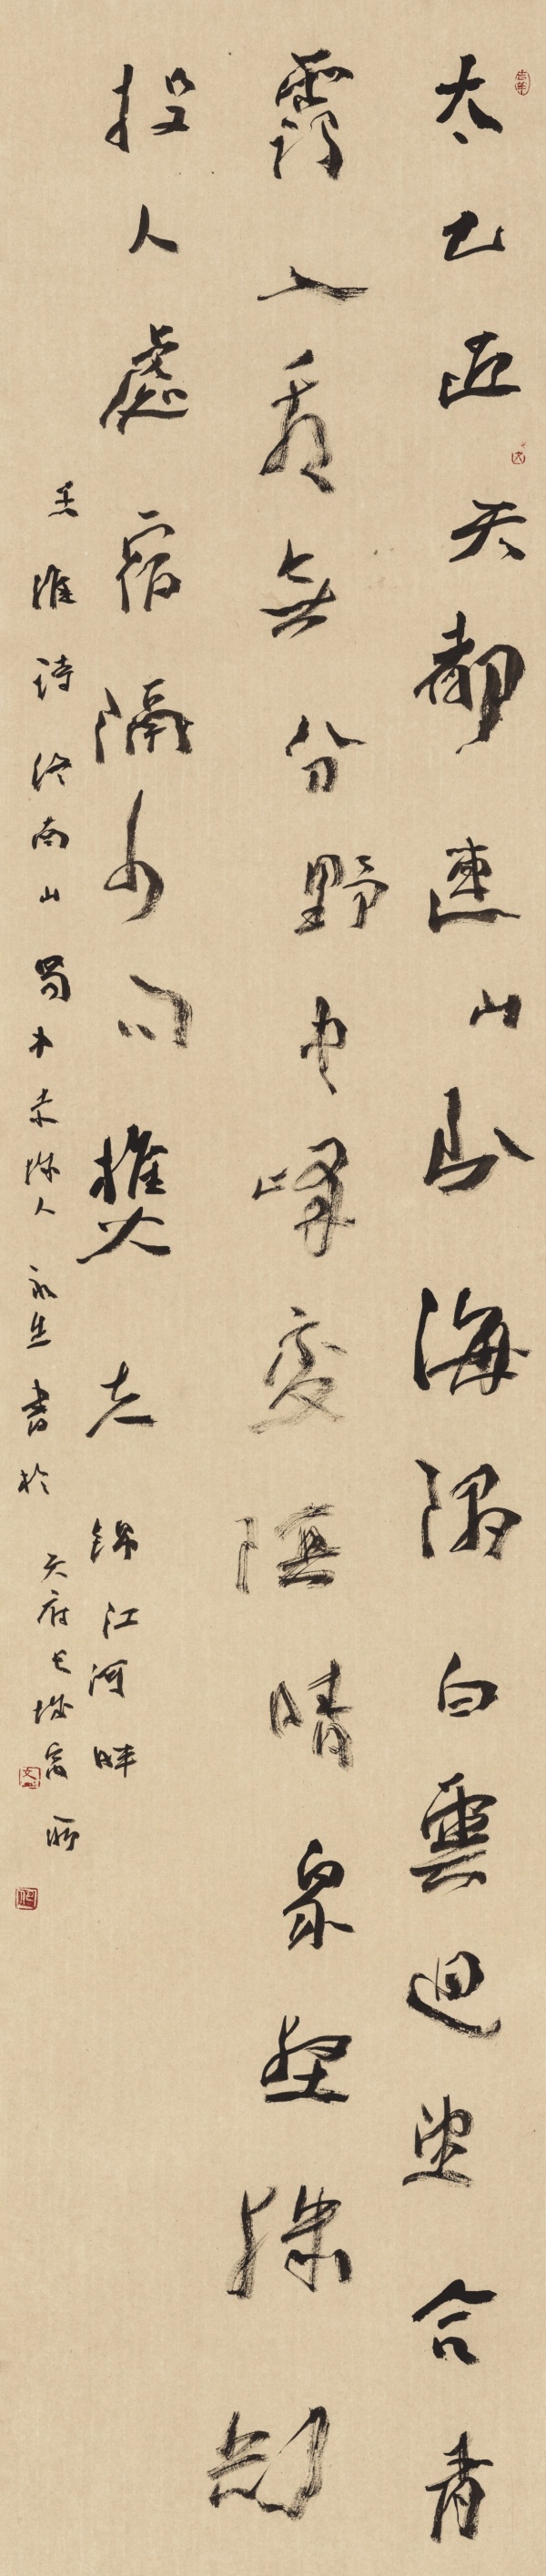 太乙近天都連山到海隅白雲迴望合青
靄入看無分野中峰變陰晴眾壑殊欲
投人處宿隔水問樵夫 錦江河畔
王維詩終南山蜀中人永生書於天府長城寓所